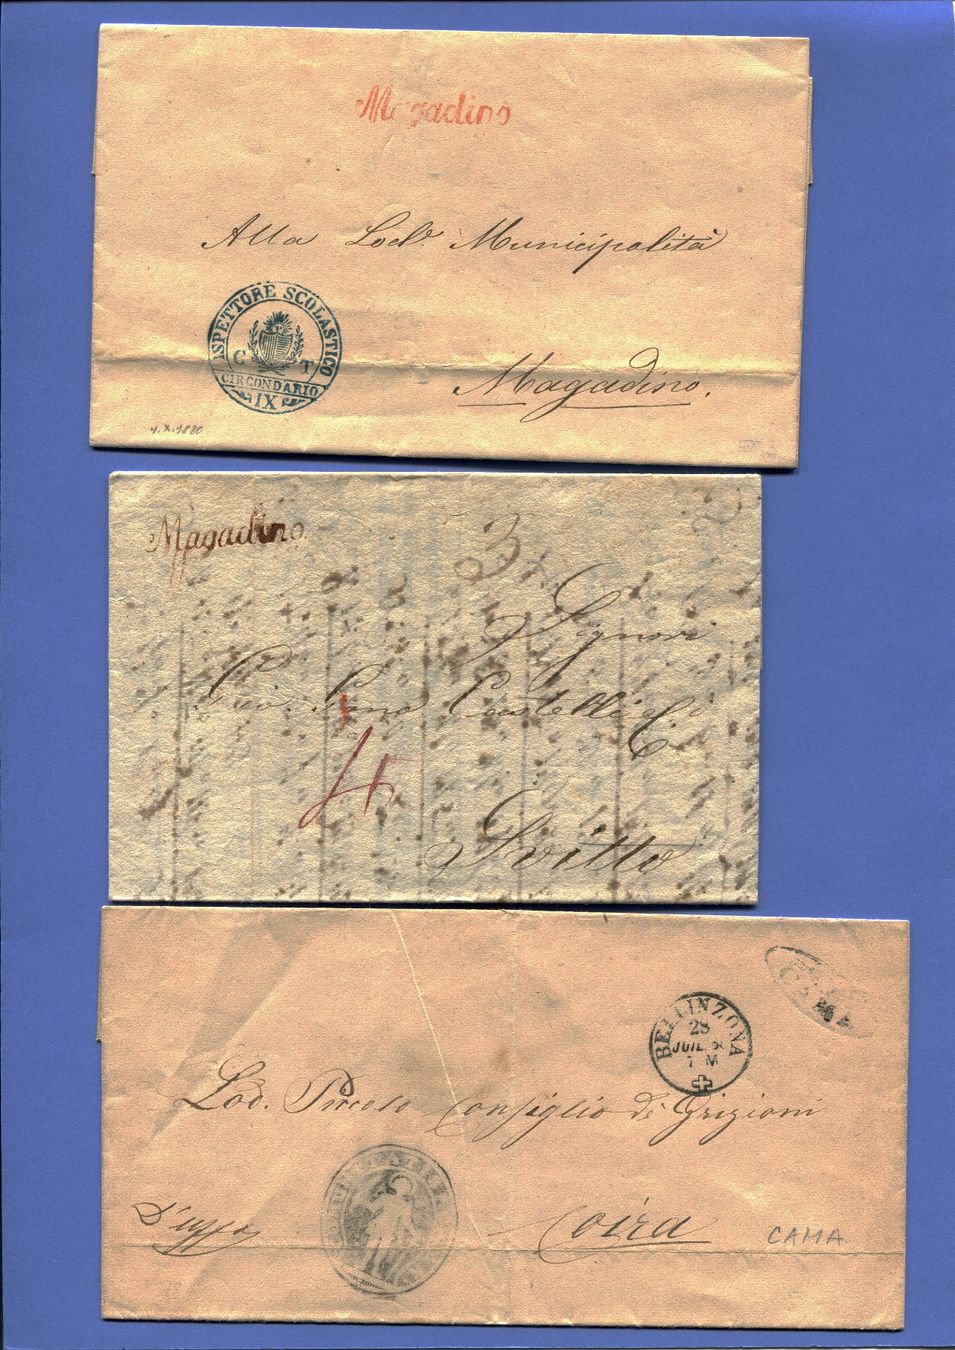 Magadino
Alla Lod.e Municipalità
ISPETTORE SCOLASTICO
C T
CIRCONDARIO
IX
Magadino.
Magadino
3
Signori
Castelli
C.i
4
Svitto
BELLINZONA
28
JUIL.
7 M
Lod. Piccolo Consiglio di Grigioni
D'uffo
Coira
CAMA